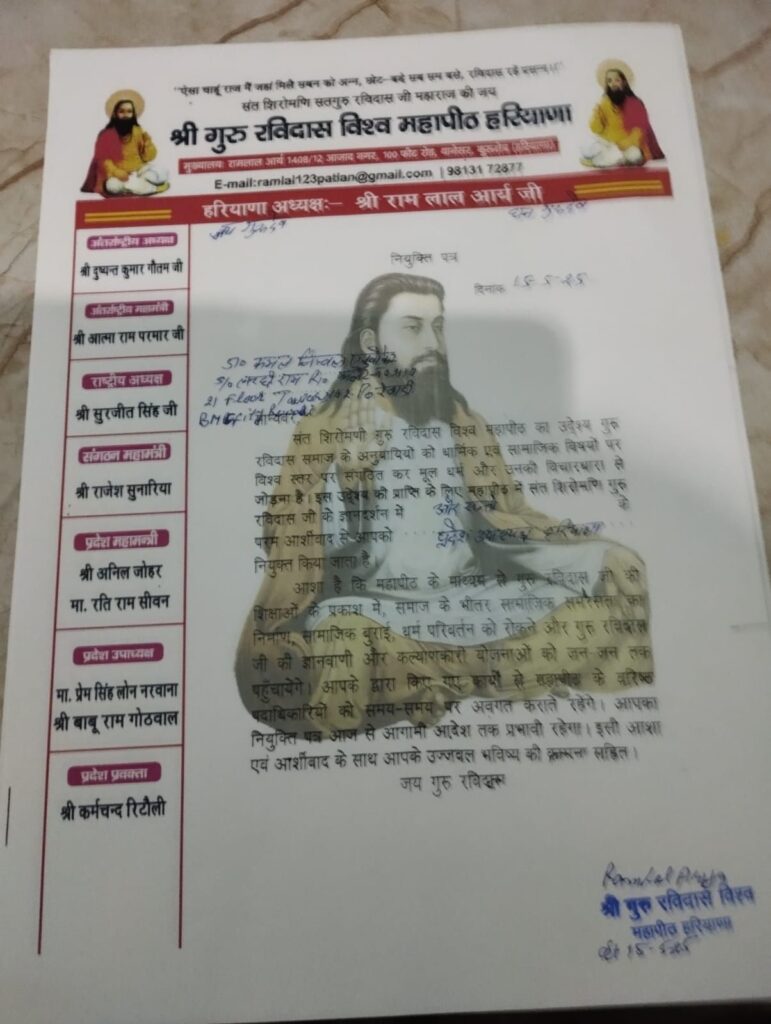 "ऐसा चाहूं राज मैं जहां मिलै सबन को अन्न, छोट-बड़े सब सम बसे, रविदास रहे प्रसन्न।।"
संत शिरोमणि सतगुरु रविदास जी महाराज की जय
श्री गुरु रविदास विश्व महापीठ हरियाणा
मुख्यालयः रामलाल आर्य 1408/12 आजाद नगर, 100 फीट रोड़, थानेसर, कुरुक्षेत्र (हरियाणा)
E-mail:ramlal123patian@gmail.com | 98131 72877
हरियाणा अध्यक्षः- श्री राम लाल आर्य जी
जय गुरुदेव
धन गुरुदेव
अंतर्राष्ट्रीय अध्यक्ष
श्री दुष्यन्त कुमार गौतम जी
अंतर्राष्ट्रीय महामंत्री
श्री आत्मा राम परमार जी
राष्ट्रीय अध्यक्ष
श्री सुरजीत सिंह जी
संगठन महामंत्री
श्री राजेश सुनारिया
प्रदेश महामन्त्री
श्री अनिल जोहर
मा. रति राम सीवन
प्रदेश उपाध्यक्ष
मा. प्रेम सिंह लोन नरवाना
श्री बाबू राम गोठवाल
प्रदेश प्रवक्ता
श्री कर्मचन्द रिटौली
नियुक्ति पत्र
दिनांक
कमल
S/o राम R/o
21 Floor
मान्यवर
संत शिरोमणी गुरु रविदास विश्व महापीठ का उद्देश्य गुरु
रविदास समाज के अनुयायियों को धार्मिक एवं सामाजिक विषयों पर
विश्व स्तर पर संगठित कर मूल धर्म और उनकी विचारधारा से
जोड़ना है। इस उद्देश्य की प्राप्ति के लिए महापीठ में संत शिरोमणि गुरु
रविदास जी के ज्ञानदर्शन में और के
परम आर्शीवाद से आपको प्रदेश हरियाणा
नियुक्त किया जाता है।
आशा है कि महापीठ के माध्यम से गुरु रविदास जी की
शिक्षाओं के प्रकाश में, समाज के भीतर सामाजिक समरसता का
निर्माण, सामाजिक बुराई, धर्म परिवर्तन को रोकने और गुरु रविदास
जी की ज्ञानवाणी और कल्याणकारी योजनाओं को जन-जन तक
पहुँचायेंगे। आपके द्वारा किए गए कार्यों से महापीठ के वरिष्ठ
पदाधिकारियों को समय-समय पर अवगत कराते रहेंगे। आपका
नियुक्ति पत्र आज से आगामी आदेश तक प्रभावी रहेगा। इसी आशा
एवं आर्शीवाद के साथ आपके उज्जवल भविष्य की कामना सहित।
जय गुरु रविदास
Ramlal Arya
श्री गुरु रविदास विश्व
महापीठ हरियाणा